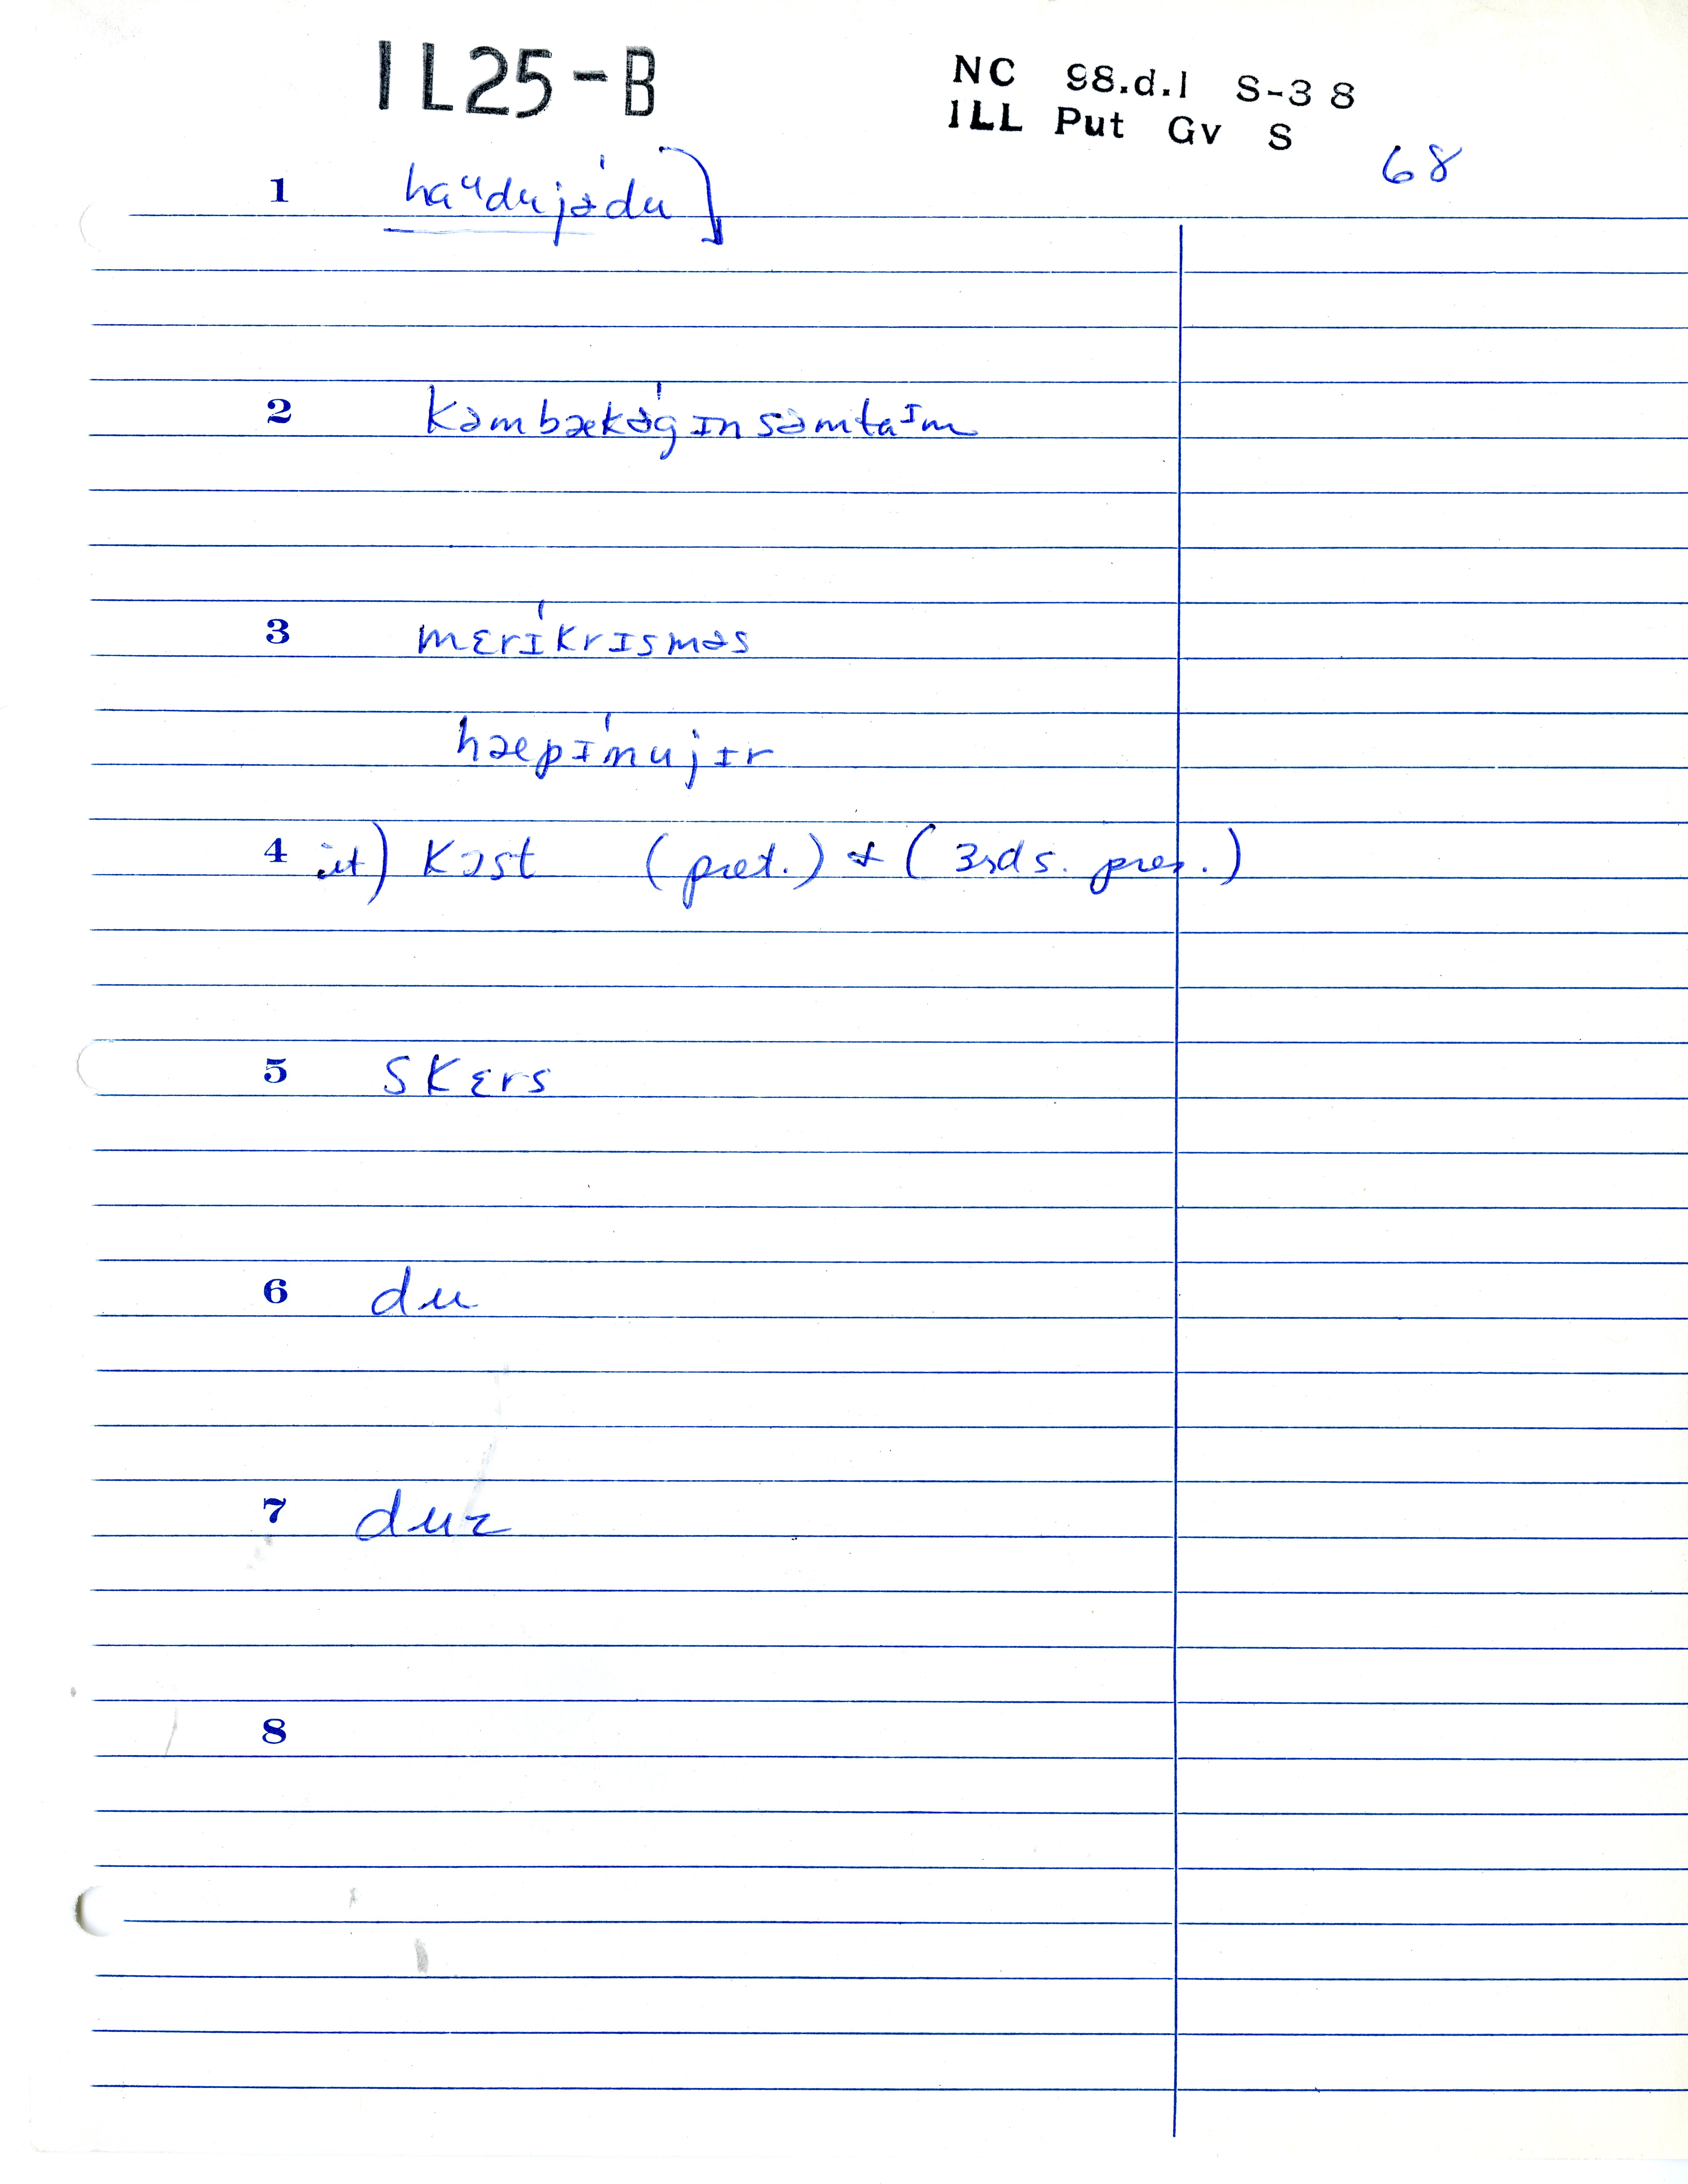 IL25-B
NC 98.d.1 S-38
ILL Put Gv S
68
1 haᵘdujə'du]
2 kəmbækə'gɪnsəmtaᶦm
3 mɛrɪ'krɪsməs
hæpɪ'nujɪr
4 it) kɔst (pret.) & (3rd s. pres.)
5 skɛrs
6 du
7 duz
8